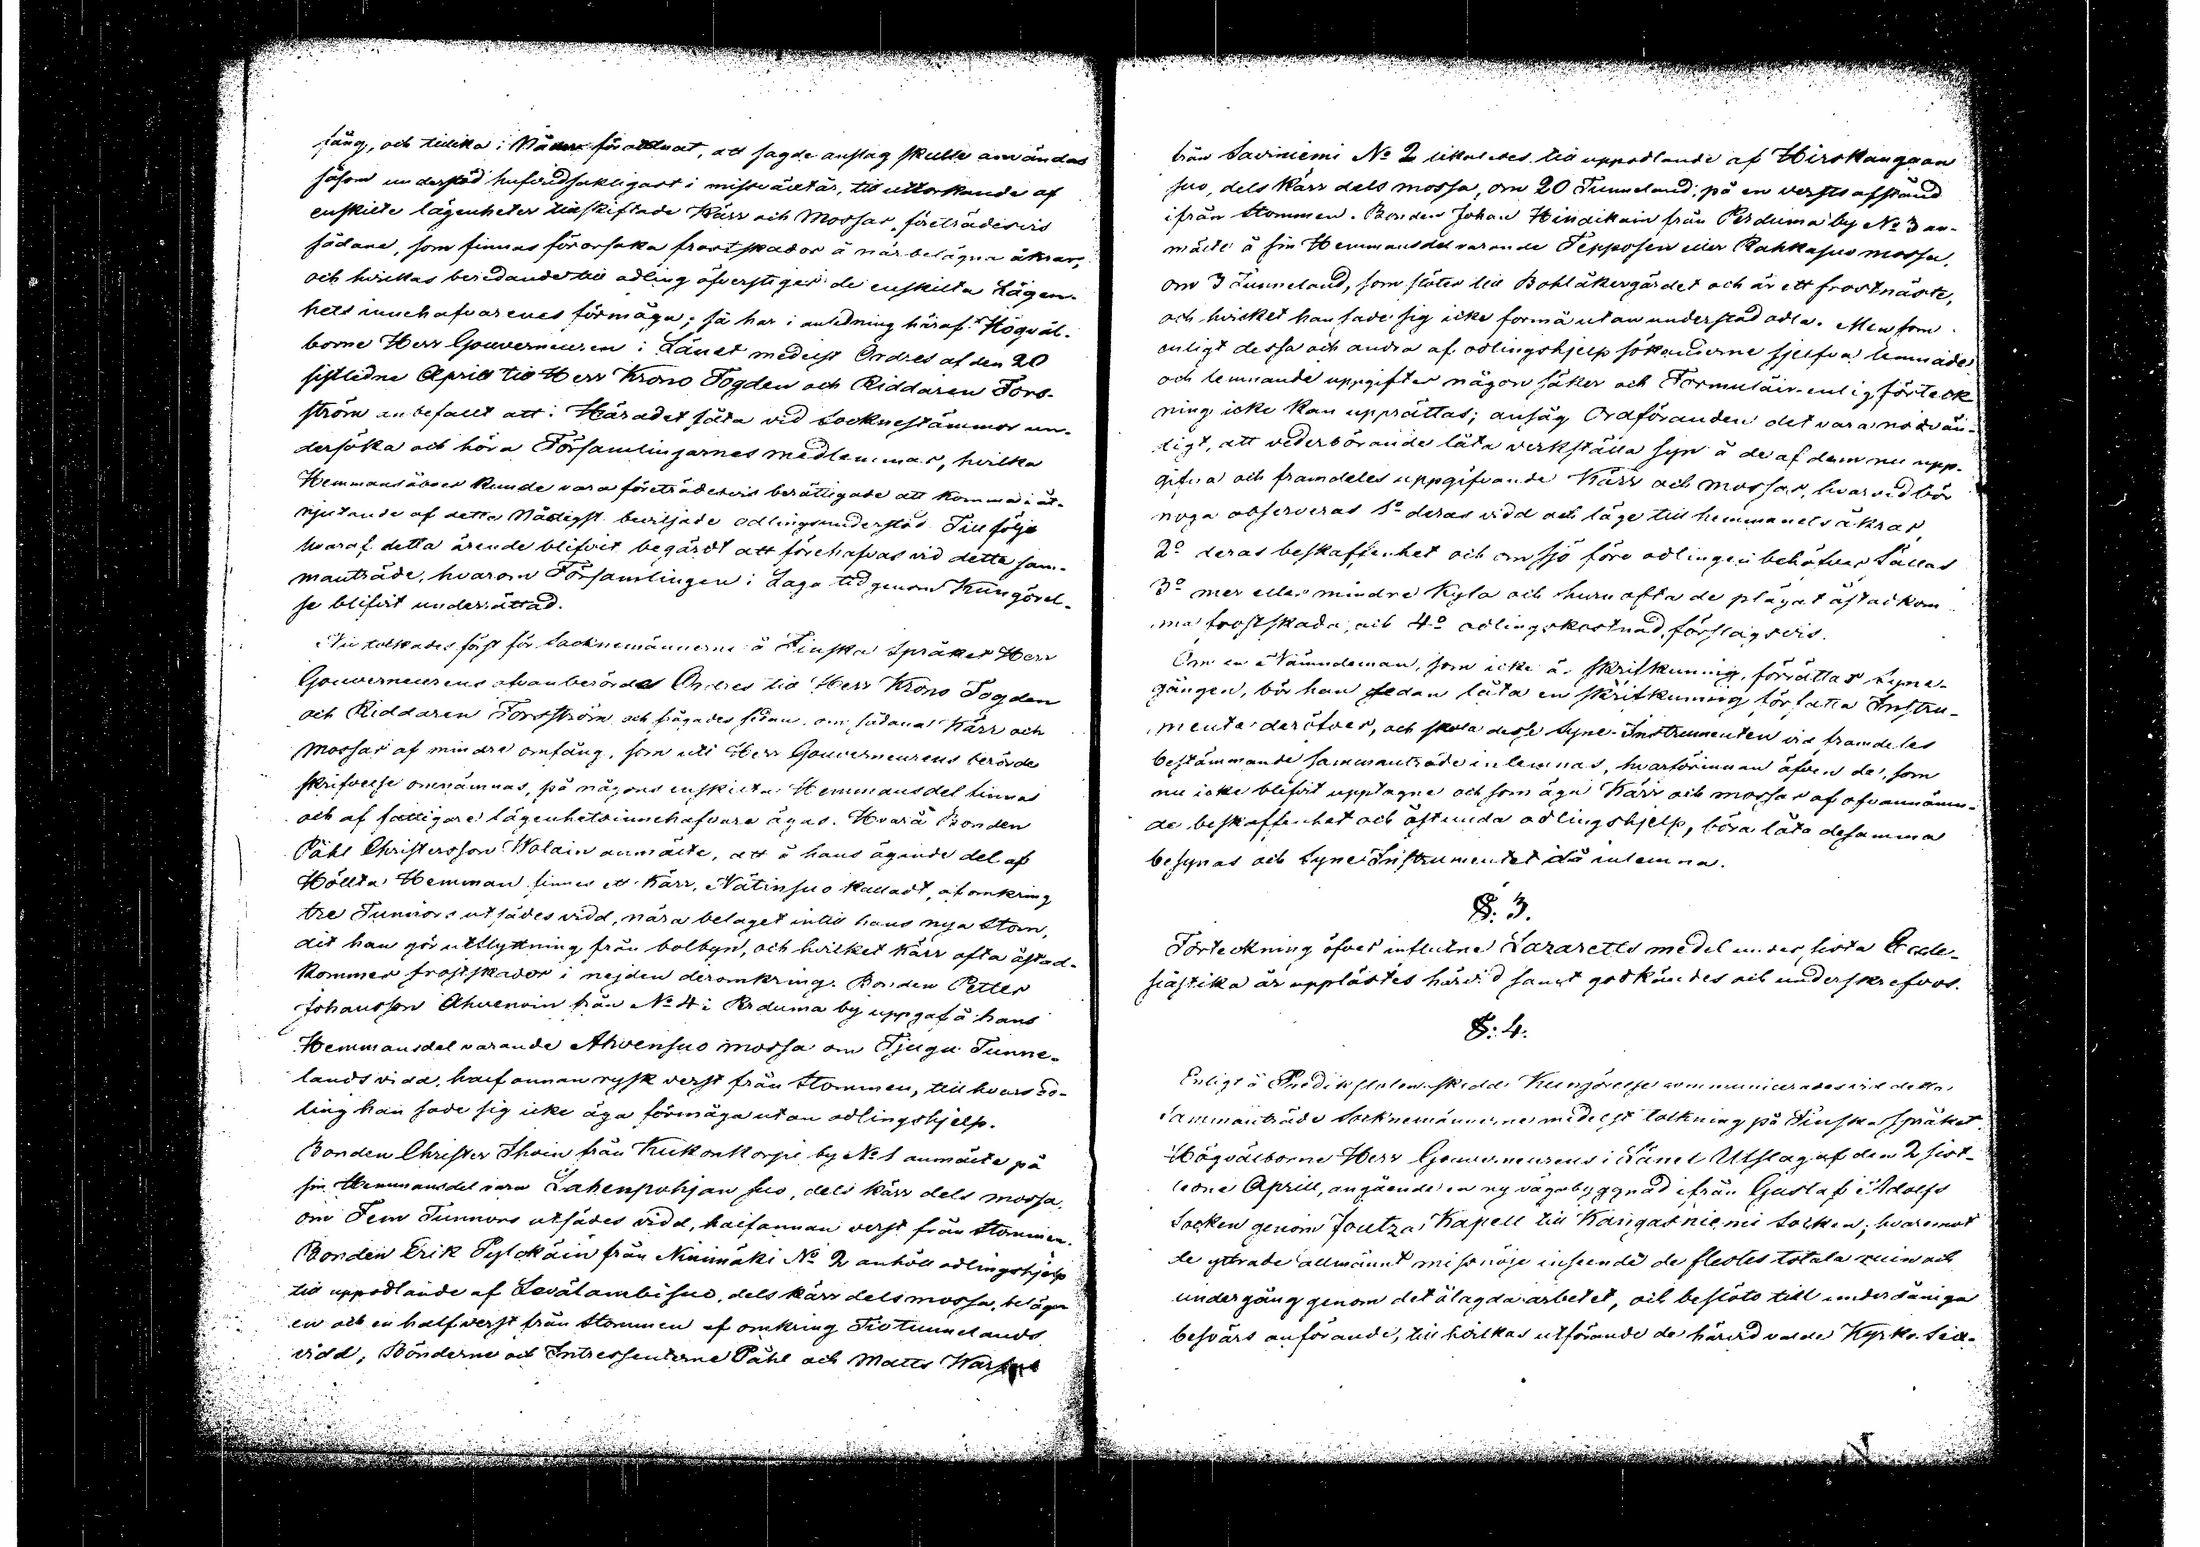 fång, och tillika i Nåder förordnat, att sagde anslag skulle användas
såsom understöd hufvudsakligast i missväxtår, till uttorkande af
enskilte lägenheter tillskiftade Kärr och Mossar, företrädesvis
sådane, som finnas förorsaka frostskador å närbelägna åkrar,
och hvilkas beredande till odling öfverstiger de enskilta Lägen-
hets innehafvarenes förmåga; så har i anledning häraf Högväl-
borne Herr Gouverneuren i Länet medelst Ordres af den 20
sistledne April till Herr Krono Fogden och Riddaren Fors-
ström anbefallt att i Häradet låta vid Socknestämmor un-
dersöka och höra Församlingarnes medlemmar, hvilka
Hemmansåboer kunde vara företrädesvis berättigade att komma i åt-
njutande af detta Nådigst beviljade odlingsunderstöd. Till följe
hvaraf detta ärende blifvit begärdt att förehafvas vid detta sam-
manträde, hvarom Församlingen i Laga tid genom Kungörel-
se blifvit underrättad.
Nu tolkades först för Socknemännerne å Finska Språket Herr
Gouverneurens ofvanberörde Ordres till Herr Krono Fogden
och Riddaren Forsström och frågades sedan, om sådana Kärr och
Mossar af mindre omfång, som uti Herr Gouverneurens berörde
skrifvelse omnämnas, på någons enskilta Hemmansdel finnas
och af fattigare lägenhetsinnehafvare ägas. Hvarå Bonden
Påhl Christersson Wolain anmälte, att å hans ägande del af
Höltta Hemman finnes ett Kärr, Nätinsuo kalladt, af omkring
tre Tunnors utsädes vidd, nära belaget intill hans nya Stom,
dit han gör utflyttning från bolbyn, och hvilket Kärr ofta åstad-
kommer frostskador i nejden deromkring. Bonden Petter
Johansson Ahvenain från No 4 i Perduma by uppgaf å hans
Hemmansdel varande Ahvensuo mossa om Tjugu Tunne-
lands vidd, half annan rysk verst från Stommen, till hvars od-
ling han sade sig icke äga förmåga utan odlingshjelp.
Bonden Christer Ihoin från Kukonkorpi by No 1 anmälte på
sin Hemmansdel vara Lahenpohjan suo, dels kärr dels mossa,
om Fem Tunnors utsädes vidd, half annan verst från Stommen.
Bonden Erik Pylckäin från Ninimäki No 2 anhöll odlingshjelp
till uppodlande af Levälambisuo, dels kärr dels mossa, belägen
en och en half verst från Stommen af omkring Tio tunnelands
vidd, Bönderne och Intressenterne Påhl och Matts
från Saviniemi No 2 likaledes till uppodlande af Hirskangaan
suo, dels Kärr dels mossa, om 20 Tunneland, på en versts afstånd
ifrån Stommen. Bonden Johan Hindikain från Perduma by No 3 an-
mälte å sin Hemmansdel varande Tepposen eller Rahkasuo mossa,
om 3 Tunneland, som stöter till Bohlåkergärdet och är ett frostnäste,
och hvilket han sade sig icke förmå utan understöd odla. Men som
enligt dessa och andra af odlingshjelp sökanderne sjelfva lemnade
och lemnande uppgifter någon säker och Formulair-enlig förteck-
ning icke kan upprättas; ansåg Ordföranden det vara nödvän-
digt, att vederbörande låta verkställa syn å de af dem nu upp-
gifna och framdeles uppgifvande Kärr och mossar, hvarvid bör
noga observeras 1o deras vidd och läge till hemmanets åkrar,
2o deras beskaffenhet och om sjö före odlingen behöfver fällas
3o mer eller mindre Kyla och huru ofta de plägat åstadkom-
ma frostskada, och 4o odlingskostnad förslagsvis.
Om en Nämndeman, som icke är skrifkunnig, förrättar Syne-
gången, bör han sedan låta en skrifkunnig författa Instru-
mente deröfver, och skola desse Syne-Instrumenten vid framdeles
bestämmande sammanträde inlemnas, hvarförinnan äfven de, som
nu icke blifvit upptagne och som äga Kärr och mossar af ofvannämn-
de beskaffenhet och åstunda odlingshjelp, böra låta desamma
besynas och Syne Instrumentet då inlemna.
§: 3.
Förteckning öfver influtne Lazaretts medel under sista Eccle-
siastika år upplästes härvid samt godkändes och underskrefvos.
§: 4.
Enligt å Predikstolen skedd Kungörelse communicerades vid detta
Sammanträde Socknemännerne medelst tolkning på Finska Språket
Högvälborne Herr Gouverneurens i Länet Utslag af den 2 sist-
ledne April, angående en ny vägabyggnad ifrån Gustaf Adolfs
Socken genom Joutza Kapell till Kangasniemi Socken; hvaremot
de yttrade allmännt missnöje inseende de flestes totala ruin och
undergång genom det ålagda arbetet, och beslöto till underdåniga
besvärs anförande, till hvilkas utförande de härvid valde Kyrko Sex-